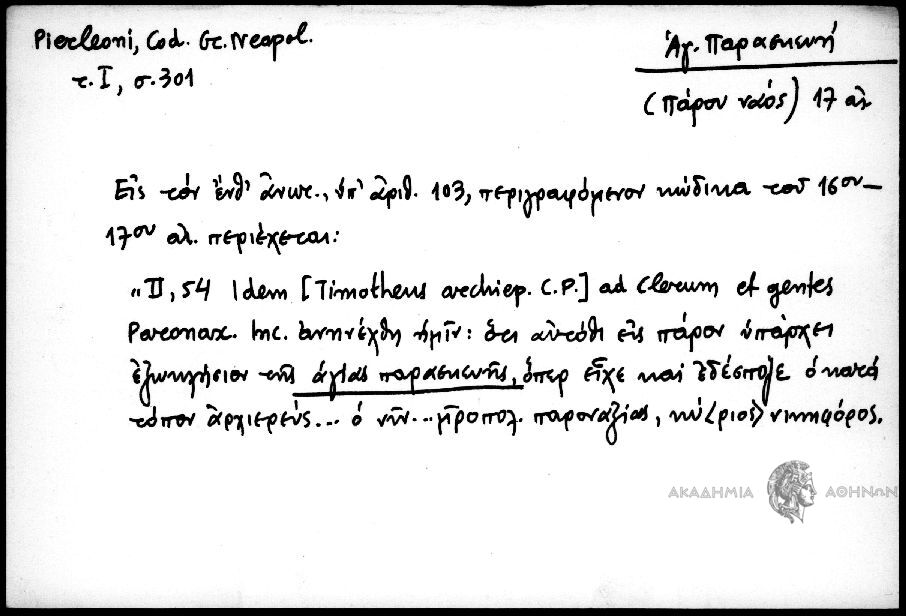 Pierleoni, Cod. Gr. Neapol.
τ. I, σ. 301
Ἁγ. Παρασκευή
(Πάρου ναός) 17 αἰ.
Εἰς τόν ἐνθ' ἄνωτ., ὑπ' ἀριθ. 103, περιγραφόμενον κώδικα τοῦ 16ου–
17ου αἰ. περιέχεται:
„II, 54 Idem [Timotheus archiep. C.P.] ad clerum et gentes
Paronax. Inc. ἀνηνέχθη ἡμῖν: ὅτι αὐτόθι εἰς πάρον ὑπάρχει
ἐξωκλήσιον τῆς ἁγίας παρασκευῆς, ὅπερ εἶχε καί ἐδέσποζε ὁ κατά
τόπον ἀρχιερεύς... ὁ νῦν... μ̅ροπολ. παροναξίας, κύ<ριος> νικηφόρος.
ΑΚΑΔΗΜΙΑ ΑΘΗΝΩΝ